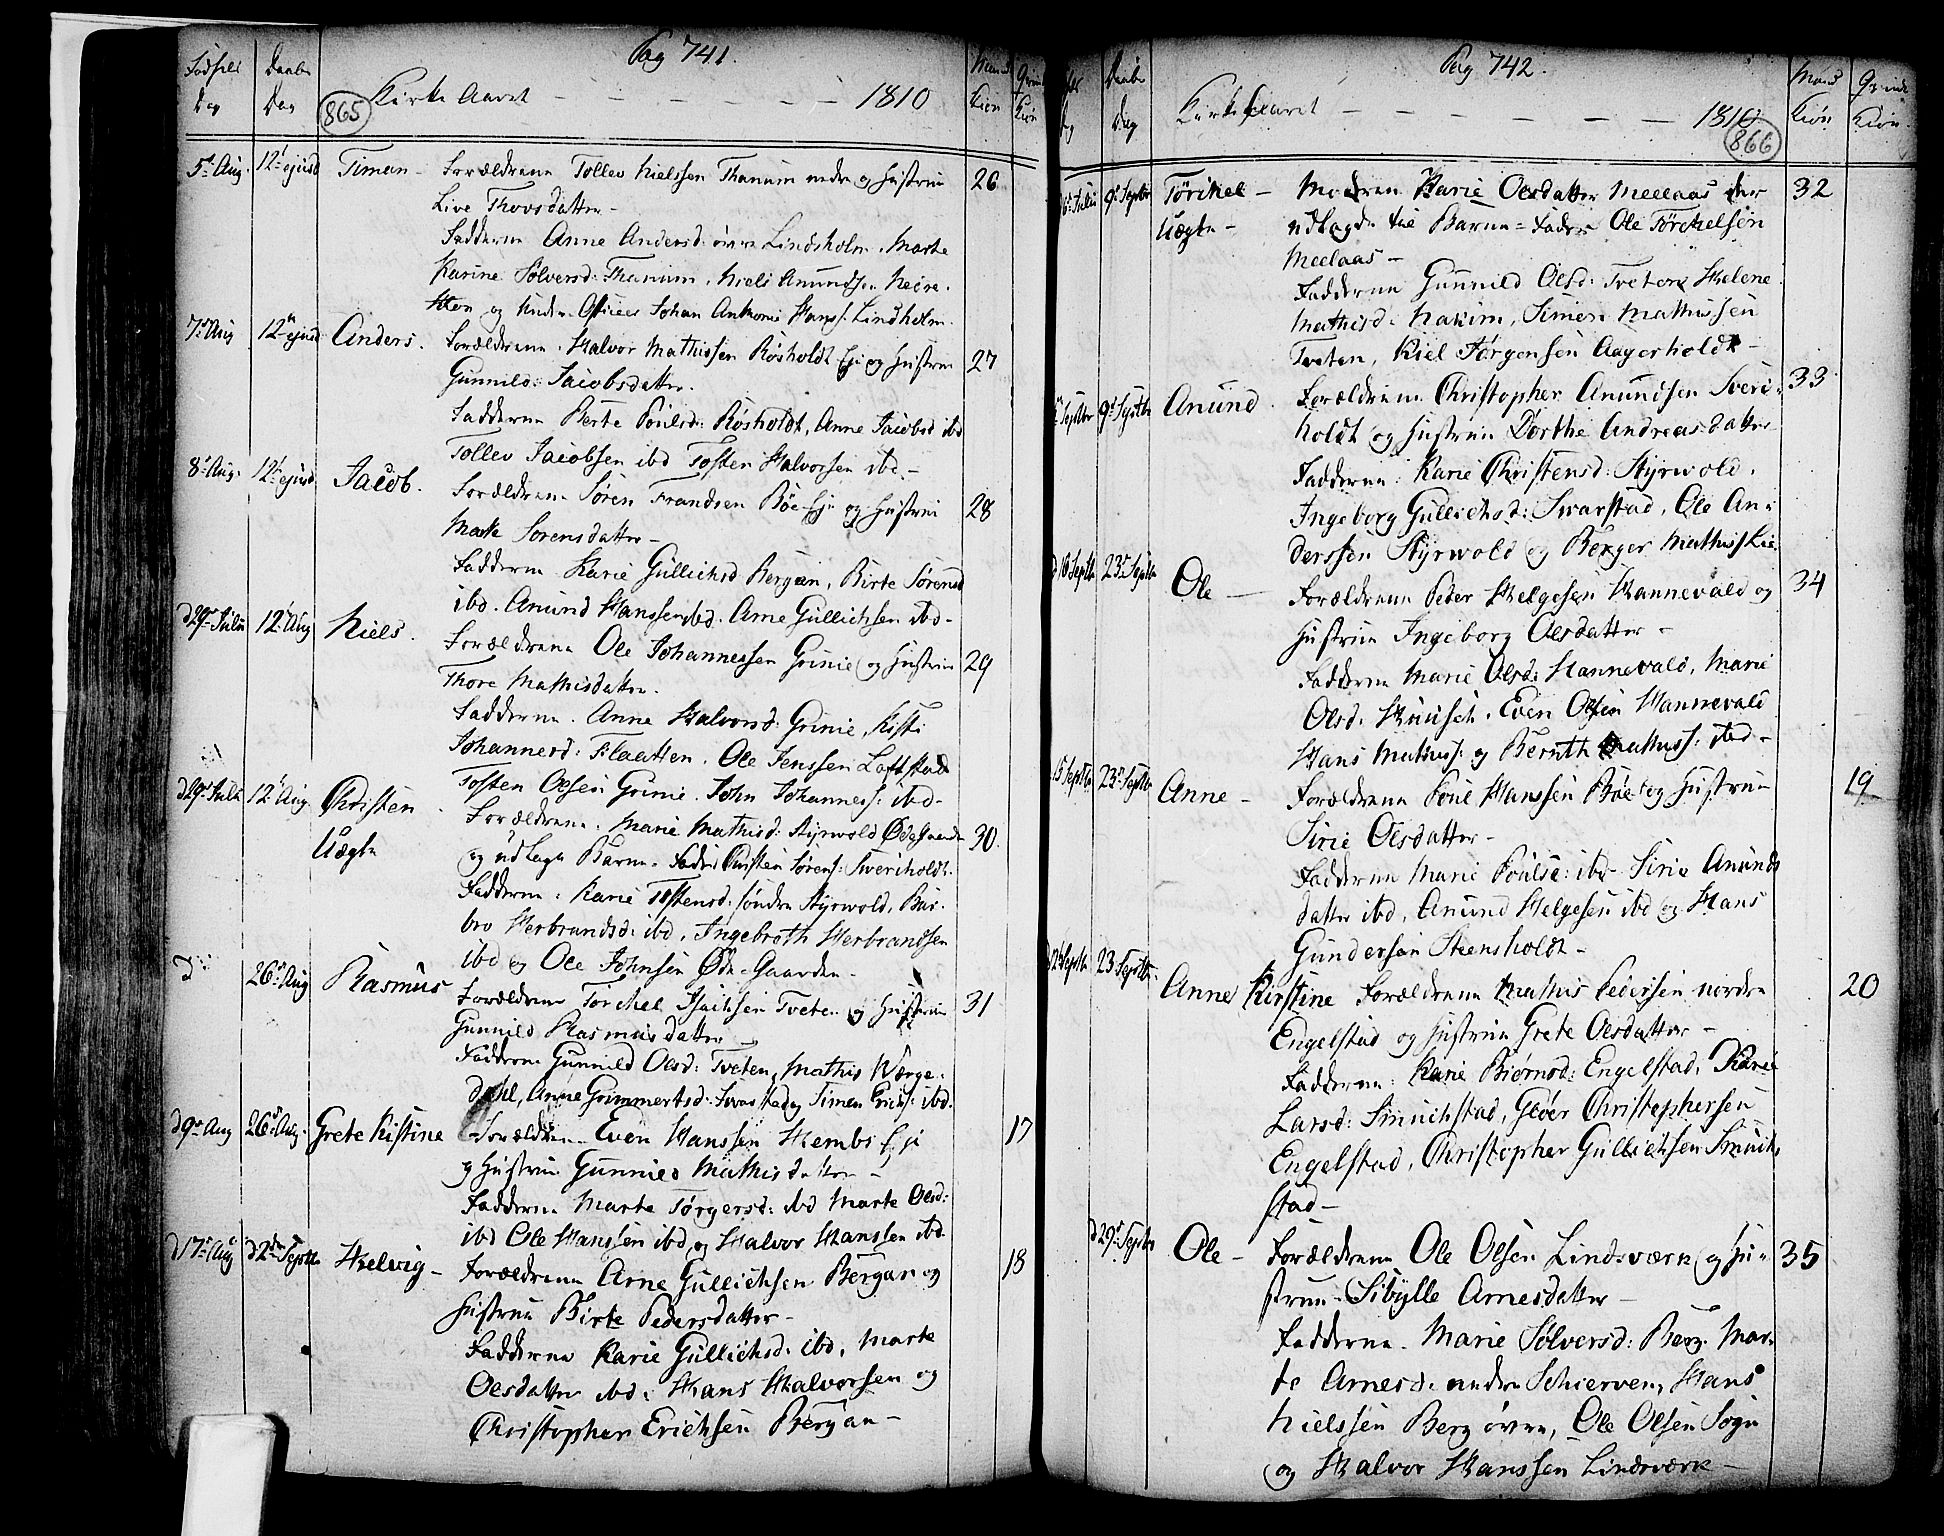 Pag 741.
Fødsels Dag
Daabs Dag
865
Kirke Aaret - - - - - - 1810
Mand Kiøn
Qvinde Kiøn
5t Aug. 12t ejusd Timan - Forældrene Tollev Nielssen Thanum nedre og Hustrue 26
Live Thovsdatter -
Fadderne Anne Andersd: øvre Lindsholm. Marte
Karine Sølversd: Thanum. Niels Anundsen
og Under Officeer Johan Anthoni Hanss: Lindholm.
7de Aug 12te ejusd Anders. Forældrene. Halvor Mathissen Røsholdt Eje og Hustrue 27
Gunnild: Jacobsdatter.
Fadderne Berte Poulsd: Røsholdt, Anne Jacobsd ibd
Tollev Jacobsen ibd Tosten Halvorsen ibd -
8t Aug. 12t ejusd Jacob. Forældrene Søren Frandsen Bøe-Eje og Hustrue 28
Marte Sørensdatter -
Fadderne Karie Gullichsd Bergan, Birte Sørensd
ibd. Anund Hanssen ibd. Arne Gullichsen ibd -
d29de Julii 12t Aug Niels. Forældrene Ole Johannessen Grinie og Hustrue 29
Thore Mathisdatter.
Fadderne. Anne Halvorsd: Grinie, Kisti
Johannesd: Flaatten. Ole Jenssen Loftstad
Tosten Olsen Grinie. John Johanness: ibd -
d29de Julii 12t Aug Christen Forældrene. Marie Mathisd: Styrwold Ødegaarden 30.
Uægte og udlagte Barne-Fader Christen Sørens: Sweriholdt.
Fadderne: Karie Tostensd: søndre Styrwold, Bar-
bro Herbrandsd: ibd, Ingebroth Herbrandsen
ibd og Ole Johnsen Øde-Gaarden -
d 26de Aug Rasmus Forældrene Torchel Isachsen Tveten og Hustrue 31
Gunnild Rasmusdatter
Fadderne Gunnild Olsd: Tveten, Mathis Wærge-
dahl, Anne Grimmertsd: Swarstad og Timen Erichs: ibd.
d9de Aug 26de Aug. Grete Kistine Forældrene Even Hanssen Hembs Eje 17
og Hustrue Gunnild Mathisdatter -
Fadderne Marte Tørgersd: ibd Marte Olsd:
ibd Ole Hanssen ibd og Halvor Hanssen ibd.
d17de Aug d2den Septbr Helvig - Forældrene Arne Gullichsen Bergan og 18
Hustrue Birte Pedersdatter -
Fadderne Karie Gullichsd: ibd, Marte
Olsdatter ibd: Hans Halvorsen og
Christopher Erichsen Bergan -
Pag 742.
Daabs Dag
Kirke Aaret - - - - - - 1810
866
Mand Kiøn
Qvinde Kiøn
Julii 9de Septbr Törchel - Modren Karie Olsdatter Meelaas den 32
Uægte - udlagde til Barne-Fader Ole Törchelsen
Meelaas -
Fadderne Gunnild Olsd: Tveten Helene
Mathisd: Nakim, Simen Mathissen
Tveten, Kiel Jörgensen Aagerholdt -
Septbr 9de Septbr Anund. Forældrene Christopher Anundsen Sveri- 33
holdt og Hustrue Dorthe Andreasdatter
Fadderne: Karie Christensd: Styrwold.
Ingeborg Gullichsd: Swarstad, Ole An-
derssen Styrwold og Berger Mathiss
Septbr 23de Septbr Ole - Forældrene Peder Helgesen Hannevald og 34
Hustrue Ingeborg Olsdatter -
Fadderne Marie Olsd: Hannevald, Marie
Olsd. Even Olsen Hannevald
Hans Mathiss: og Bernth Mathiss: ibd -
15 Septbr 23de Septbr Anne - Forældrene Poul Hanssen Bøe og Hustrue 19
Sirie Olsdatter -
Fadderne Marie Poulsd: ibd - Sirie Anunds
datter ibd, Anund Helgesen ibd og Hans
Gundersen Steensholdt -
Septbr 23 Septbr. Anne Kirstine Forældrene Mathis Pedersen nordre 20
Engelstad og Hustrue Grete Olsdatter -
Fadderne: Karie Biørnsd: Engelstad, Karie
Larsd: Smuchstad, Gloer Christophersen
Engelstad, Christopher Gullichsen Smuch-
stad -
d29de Septbr Ole - Forældrene Ole Olsen Lindsværn og Hu- 35
strue - Sibylle Arnesdatter -
Fadderne. Marie Sølversd: Berg. Mar-
te Arnesd: nedre Schierven, Hans
Nielssen Berg øvre, Ole Olsen Sogn
og Halvor Hanssen Lindsværn -